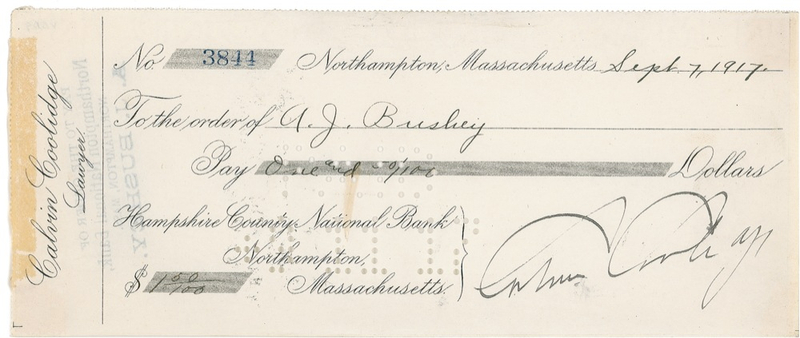 Calvin Coolidge
Lawyer
No. 3844 Northampton, Massachusetts Sept 7, 1917.
To the order of A. J. Bushey
Pay One and 50/100 Dollars
Hampshire County National Bank
Northampton,
Massachusetts.
$ 1 50/100
Calvin Coolidge